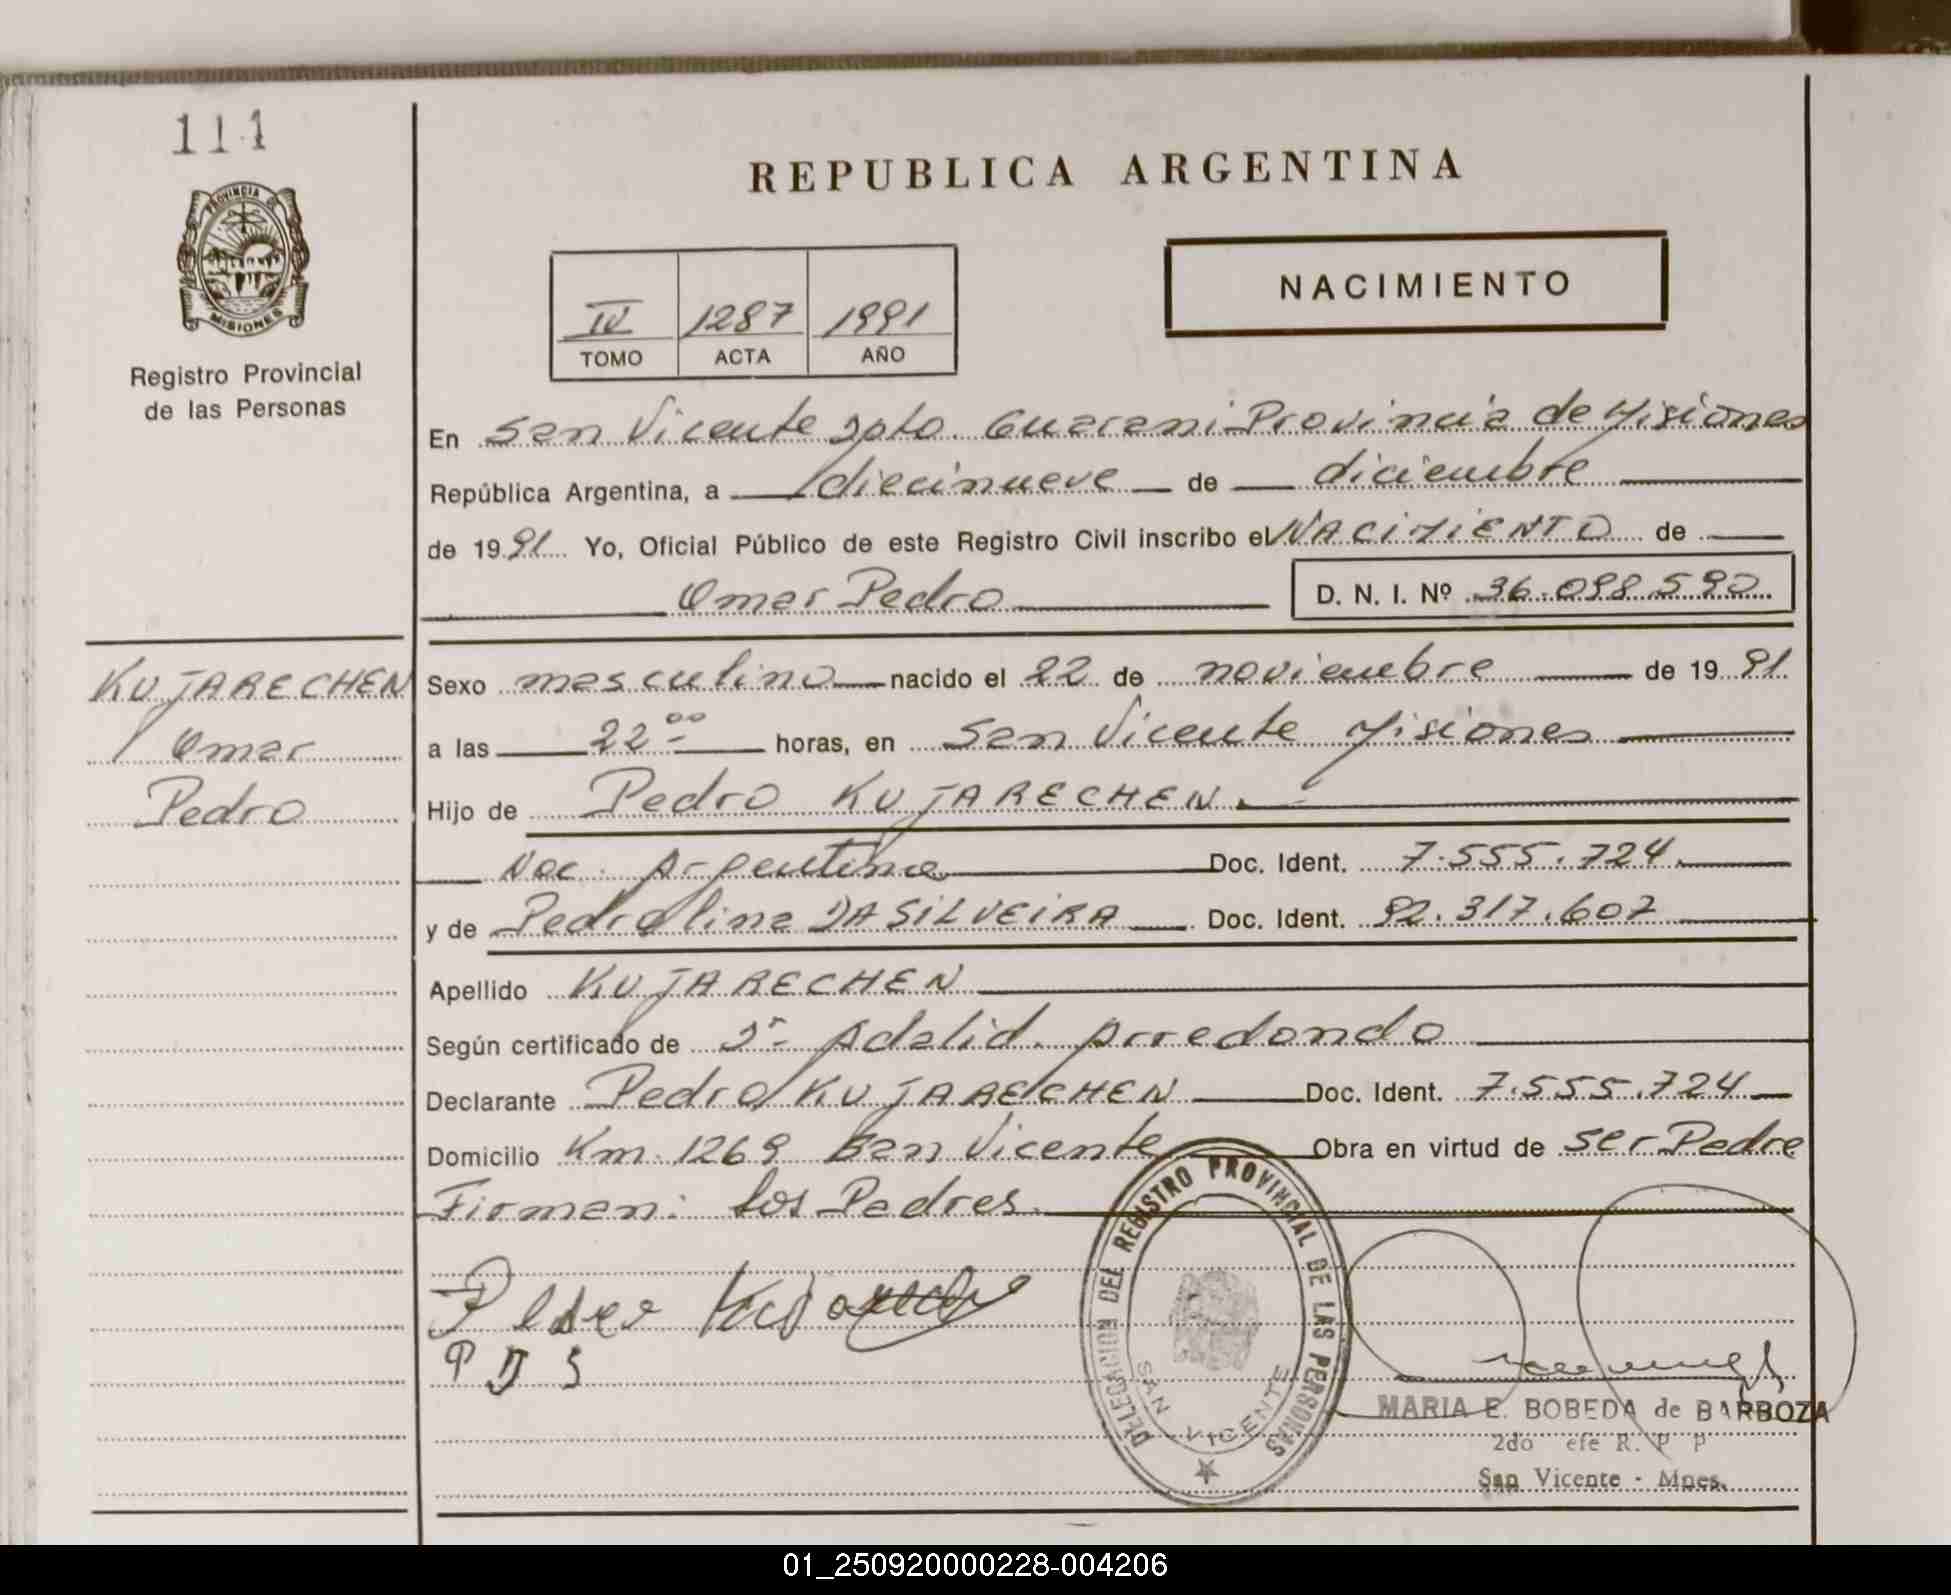 111
PROVINCIA DE
MISIONES
Registro Provincial
de las Personas
REPUBLICA ARGENTINA
NACIMIENTO
IV 1287 1991
TOMO ACTA AÑO
En San Vicente Dpto. Guarani Provincia de Misiones
República Argentina, a diecinueve de diciembre
de 1991 Yo, Oficial Público de este Registro Civil inscribo el NACIMIENTO de
Omar Pedro D. N. I. Nº 36.098.590
KUJARECHEN
Omar
Pedro
Sexo masculino nacido el 22 de noviembre de 1991
a las 22 00 horas, en San Vicente Misiones
Hijo de Pedro KUJARECHEN
Nac. Argentina Doc. Ident. 7.555.724
y de Pedrolina DA SILVEIRA Doc. Ident. 92.317.607
Apellido KUJARECHEN
Según certificado de Dr. Adalid Arredondo
Declarante Pedro KUJARECHEN Doc. Ident. 7.555.724
Domicilio Km. 1269 San Vicente Obra en virtud de ser Padre
Firman: los Padres.
P D S
DELEGACION DEL REGISTRO PROVINCIAL DE LAS PERSONAS
SAN VICENTE
MARIA E. BOBEDA de BARBOZA
2do efe R. P P
San Vicente - Mnes.
01_250920000228-004206